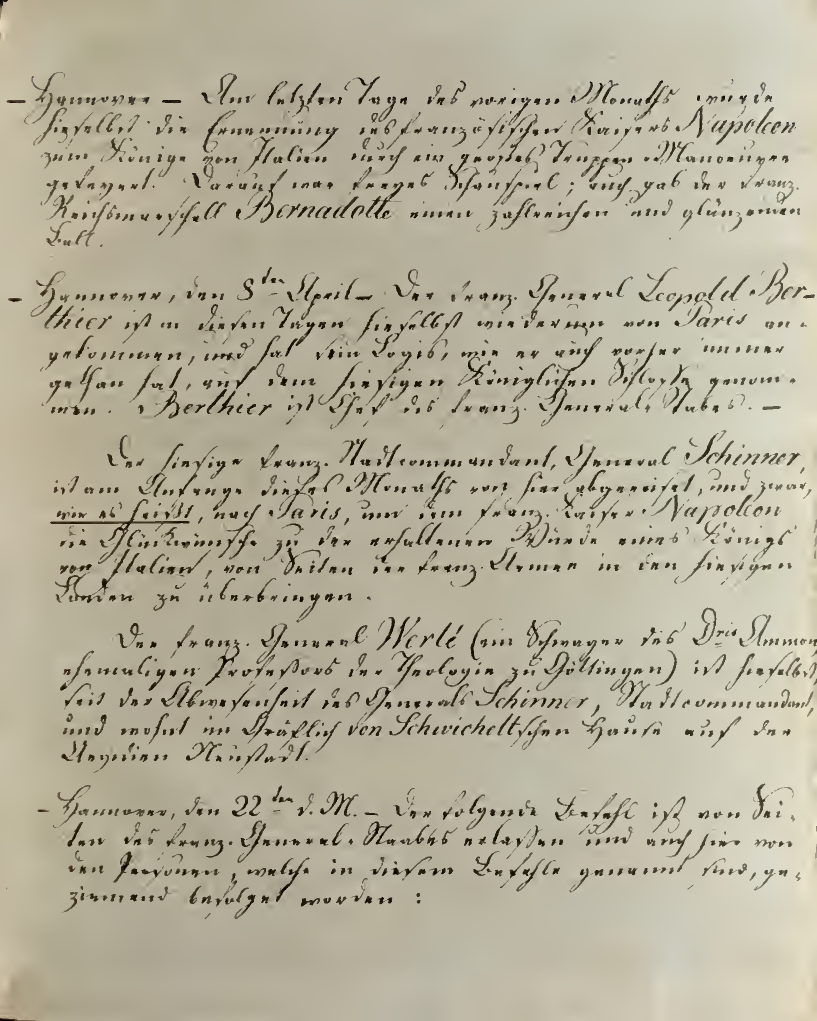 – Hannover – Am letzten Tage des vorigen Monaths wurde
hieselbst die Ernennung des französischen Kaisers Napoleon
zum Könige von Italien durch ein großes Truppen-Manoeuvre
gefeyert. Darauf war freyes Schauspiel; auch gab der franz.
Reichsmarschall Bernadotte einen zahlreichen und glänzenden
Ball.
– Hannover, den 8ten April – Der franz. General Leopold Ber-
thier ist in diesen Tagen hieselbst wiederum von Paris an-
gekommen, und hat sein Logis, wie er auch vorher immer
gethan hat, auf dem hiesigen Königlichen Schlosse genom-
men. Berthier ist Chef des franz. General-Stabes. –
Der hiesige franz. Stadtcommandant, General Schinner,
ist am Anfange dieses Monaths von hier abgereiset, und zwar,
wie es heißt, nach Paris, um dem franz. Kaiser Napoleon
die Glückwünsche zu der erhaltenen Würde eines Königs
von Italien, von Seiten der franz. Armee in den hiesigen
Landen zu überbringen.
Der franz. General Werlé (ein Schwager des Dris Ammon,
ehemaligen Professors der Theologie zu Göttingen) ist hieselbst,
seit der Abwesenheit des Generals Schinner, Stadtcommandant,
und wohnt im Gräflich von Schwicheltschen Hause auf der
Aegidien Neustadt.
– Hannover, den 22ten d. M. – Der folgende Befehl ist von Sei-
ten des franz. General-Staabes erlassen und auch hier von
den Personen, welche in diesem Befehle genannt sind, ge-
ziemend befolget worden :